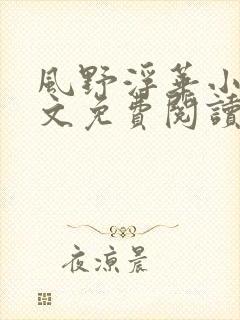 風野浮華小
文免費閱讀
夜涼晨